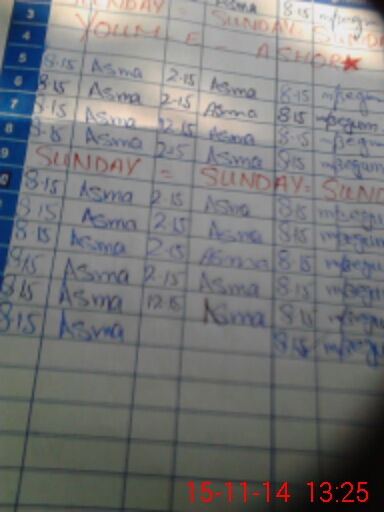 Asma 8.15 mBegum
3 SUNDAY = SUNDAY = SUND
4 YOUM E - ASHOR
5 8.15 Asma 2.15 Asma 8.15 mBegum
6 8.15 Asma 2.15 Asma 8.15 mBegum
7 8.15 Asma 12.15 Asma 8.15 mBegum
8 8.15 Asma 2.15 Asma 8.15 mBegum
9 SUNDAY = SUNDAY = SUND
0 8.15 Asma 2.15 Asma 8.15 mBegum
8.15 Asma 2.15 Asma 8.15 mBegum
8.15 Asma 2.15 Asma 8.15 mBegum
8.15 Asma 2.15 Asma 8.15 mBegum
8.15 Asma 12.15 Asma 8.15 mBegum
8.15 Asma 8.15 mBegum
15-11-14 13:25